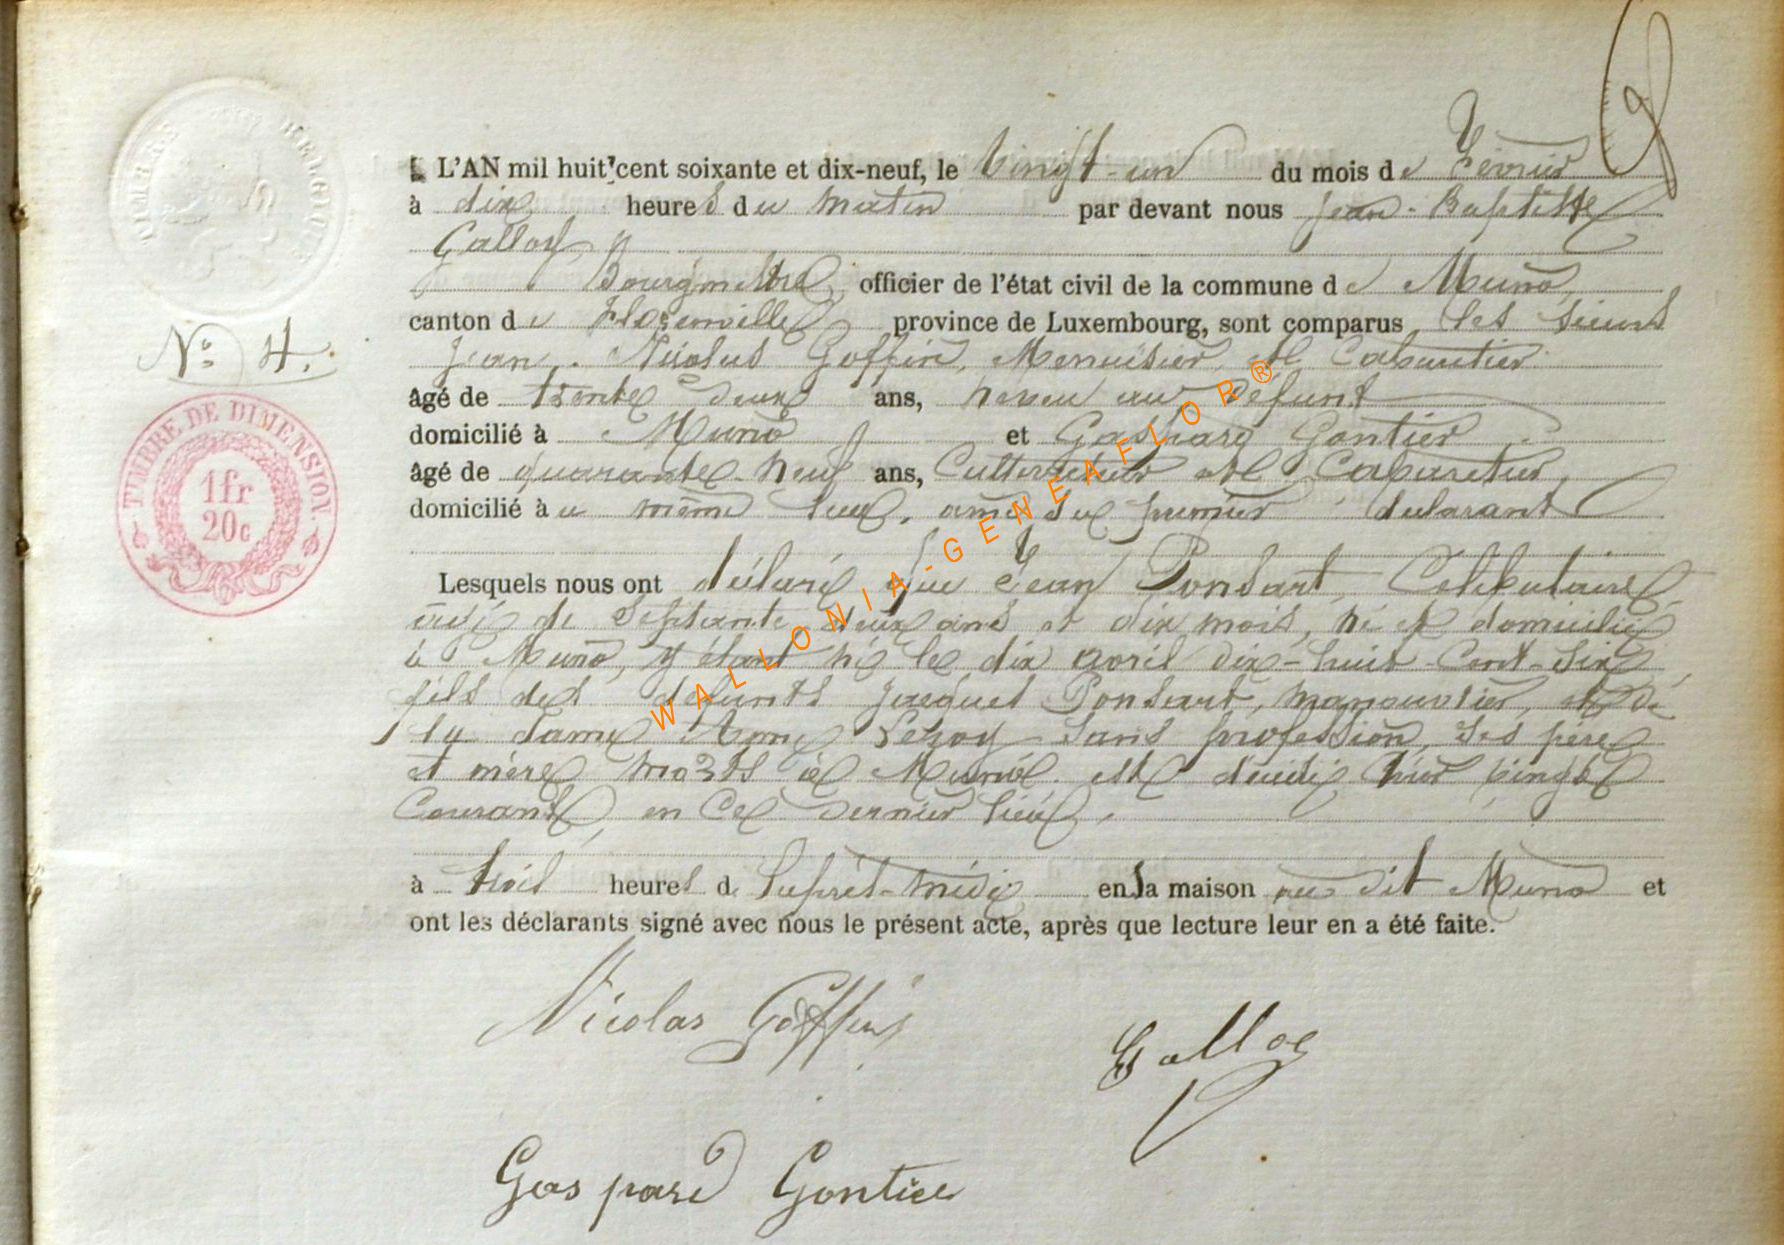 L'AN mil huit cent soixante et dix-neuf, le Vingt-un du mois de Février
à dix heures du matin par devant nous Jean-Baptiste
Galloy
Bourgmestre, officier de l'état civil de la commune de Muno,
canton de Florenville province de Luxembourg, sont comparus les sieurs
Jean-Nicolas Goffin, Menuisier et Cabaretier
âgé de trente deux ans, neveu au défunt
domicilié à Muno et Gaspard Gontier
âgé de quarante-neuf ans, Cultivateur et Cabaretier,
domicilié au même lieu, ami du premier déclarant
Lesquels nous ont déclaré que Jean Ponsart, Célibataire,
âgé de Septante deux ans et dix mois, né et domicilié
à Muno, y étant né le dix avril dix-huit-cent-six
fils des défunts Jacques Ponsart, manouvrier, et de
la dame Anne sans profession, ses père
et mère morts à Muno est décédé hier vingt
Courant, en ce dernier lieu,
à trois heures de l'après-midi en sa maison au dit Muno et
ont les déclarants signé avec nous le présent acte, après que lecture leur en a été faite.
Nicolas Goffin
Galloy
Gaspard Gontier
TIMBRE BELGIQUE
N° 4.
TIMBRE DE DIMENSION.
1fr
20c
WALLONIA-GENEAFLOR®